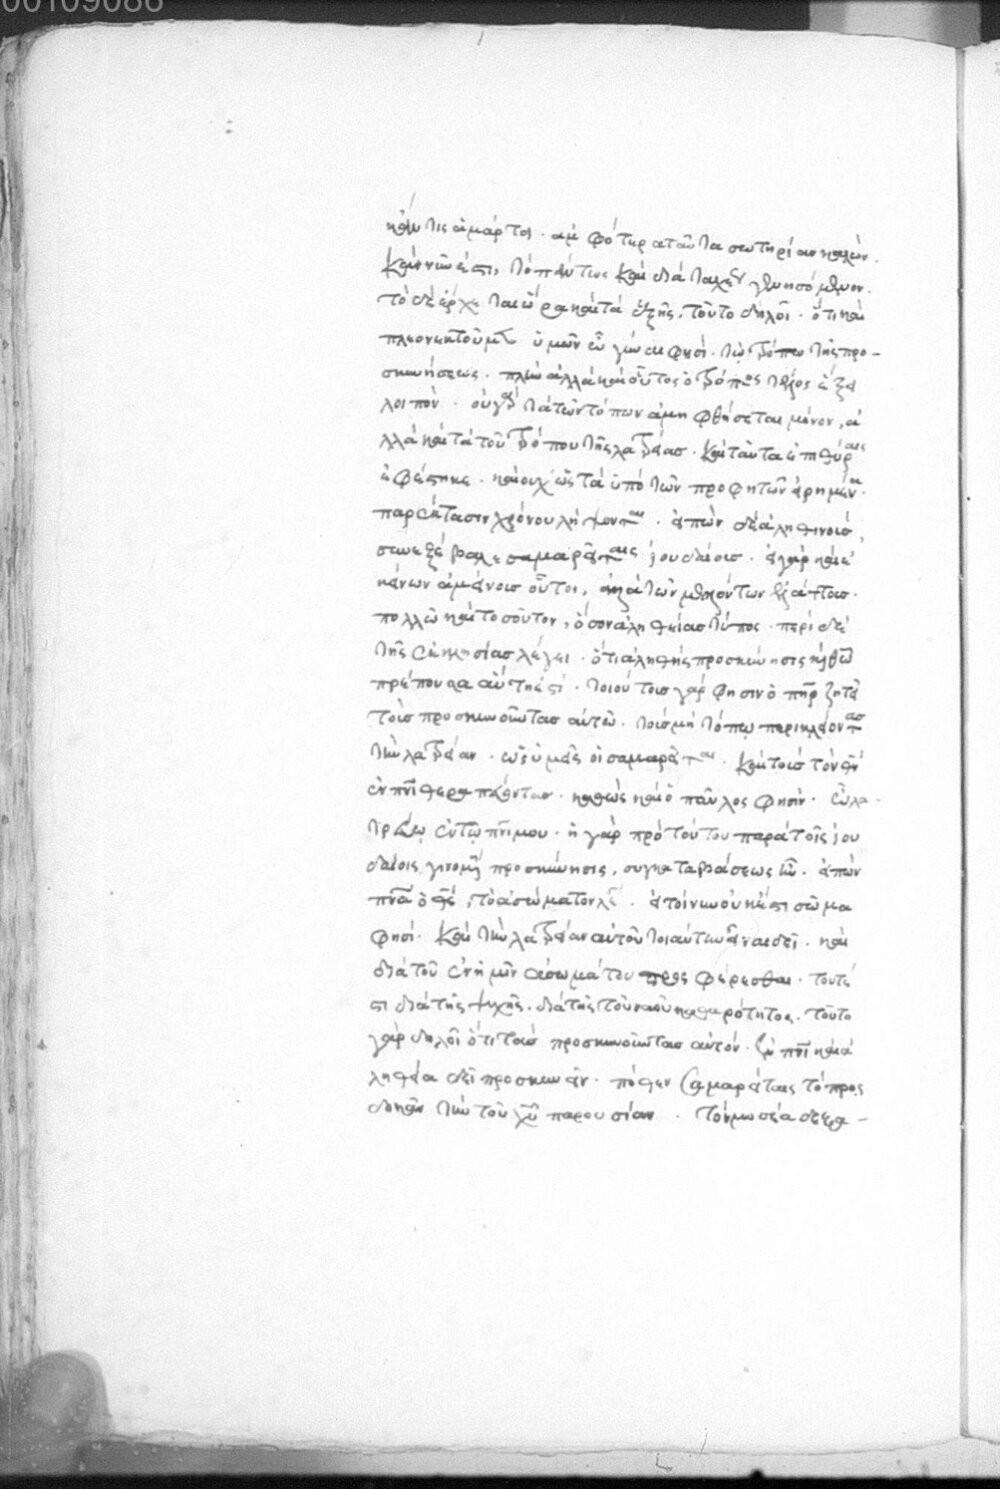 00109088
κἄν τις ἁμάρτοι . ἀμφότερα ταῦτα σωτηρίαν καλῶν .
καὶ νῦν ἐστι, τὸ πάντως καὶ διὰ τάχους γενησόμενον .
τὸ δὲ ἔρχεται ὥρα κατὰ ἑξῆς, τοῦτο δηλοῖ . ὅτι καὶ
πλεονεκτοῦμεν ὑμῶν ὦ γύναι φησί . τῷ τρόπῳ τῆς προ-
σκυνήσεως . πλὴν ἀλλὰ καὶ οὗτος ὁ τρόπος τέλος ἕξει
λοιπόν . οὐ γὰρ τὰ τῶν τόπων ἀμειφθήσεται μόνον, ἀ
λλὰ κατὰ τοῦ τρόπου τῆς λατρείας . καὶ ταῦτα ἐπὶ θύραις
ἐφέστηκε . καὶ οὐχ ὡς τὰ ὑπὸ τῶν προφητῶν εἰρημένα .
παρέκτασιν χρόνου λήψονται . εἰπὼν δὲ ἀληθινοὶ ,
συνεξέβαλε σαμαρείταις ἰουδαίοις . εἰ γὰρ καὶ ἐ
κείνων ἀμείνοις οὗτοι, ἀλλὰ τῶν μελλόντων ἐλάττοις .
πολλῷ καὶ τοσοῦτον, ὅσον ἀληθείας τύπος . περὶ δὲ
τῆς ἐκκλησίας λέγει . ὅτι ἀληθὴς προσκύνησις
πρέπουσα αὕτη ἐστί . τοιούτους γάρ φησιν ὁ πηρ ζητεῖ
τοὺς προσκυνοῦντας αὐτῷ . τοὺς μὴ τόπῳ περικλείοντας
τὴν λατρείαν . ὡς ὑμεῖς οἱ σαμαρεῖται . καὶ τοὺς τὸν θν
ἐν πνι θεραπεύοντας . καθὼς καὶ ὁ παῦλος φησὶν . ᾧ λα-
τρεύω ἐν τῷ πνι μου . ἡ γὰρ πρὸ τούτου παρὰ τοῖς ἰου
δαίοις γινομένη προσκύνησις, συγκαταβάσεως ἦν . εἰπὼν
πνα ὁ θς, τὸ ἀσώματον λέγει . εἰ τοίνυν οὐκ ἔστι σῶμα
φησί . καὶ τὴν λατρείαν αὐτοῦ τοιαύτην εἶναι δεῖ . καὶ
διὰ τοῦ ἐν ἡμῖν ἀσωμάτου προσφέρεσθαι . τουτέ
στι διὰ τῆς ψυχῆς . διὰ τῆς τοῦ νοῦ καθαρότητος . τοῦτο
γὰρ δηλοῖ ὅτι τοὺς προσκυνοῦντας αὐτόν . ἐν πνι καὶ ἀ
ληθείᾳ δεῖ προσκυνεῖν . πόθεν σαμαρείταις τὸ προς
δοκᾶν τὴν τοῦ χυ παρουσίαν . τὸν μωσέα δεξα-